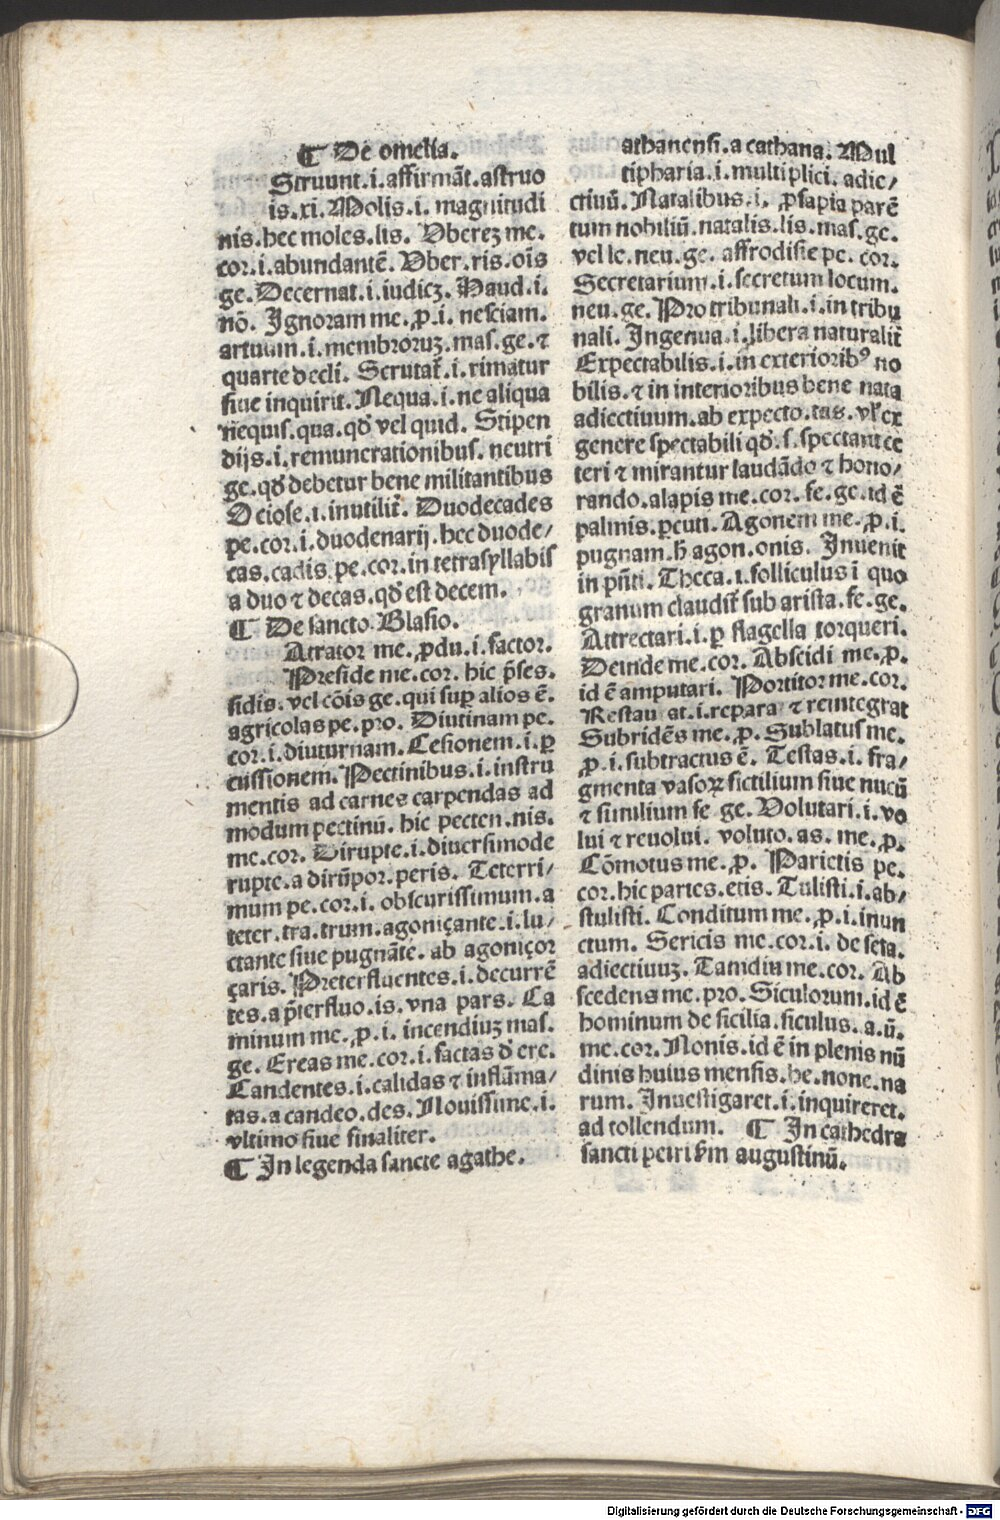 ¶ De omelia.
Struunt.i.affirmāt.astruo
is.xi.Molis.i. magnitudi
nis.hec moles.lis. Vbereꝫ me.
cor.i.abundantē.Vber.ris.oīs
ge.Decernat.i.iudicꝫ.Haud.i.
nō. Ignoram me.ꝓ.i. nesciam.
artuum.i.membroruꝫ.mas.ge.⁊
quarte decli. Scrutat̄.i.rimatur
siue inquirit.Nequa.i.ne aliqua
nequis.qua.qđ vel quid. Stipen
dijs.i.remunerationibus. neutri
ge.qđ debetur bene militantibus
Ociose.i.inutilit̄. Duodecades
pe.cor.i.duodenarij.hec duode/
cas.cadis.pe.cor.in tetrasyllabis
a duo ⁊ decas.qđ est decem.
¶ De sancto Blasio.
Atrator me.ꝓdu.i.factor.
Preside me.cor. hic p̄ses.
sidis.vel cōis ge.qui suꝑ alios ē.
agricolas pe.pro. Diutinam pe.
cor.i.diuturnam. Cesionem.i.ꝑ
cussionem.Pectinibus.i.instru
mentis ad carnes carpendas ad
modum pectinū. hic pecten.nis.
me.cor. Dirupte.i.diuersimode
rupte.a dirūpor.peris. Teterri/
mum pe.cor.i. obscurissimum.a
teter.tra.trum.agoniçante.i.lu/
ctante siue pugnāte. ab agoniçor
çaris.Preterfluentes.i.decurrē
tes.a p̄terfluo.is.vna pars. Ca
minum me.ꝓ.i. incendiuꝫ mas.
ge. Ereas me.cor.i.factas đ ere.
Candentes.i.calidas ⁊ inflāma/
tas.a candeo.des.Nouissime.i.
vltimo siue finaliter.
¶ In legenda sancte agathe.
athanensi.a cathana.Mul
tipharia.i.multiplici. adie/
ctiuū.Natalibus.i. ꝓsapia parē
tum nobiliū.natalis.lis.mas.ge.
vel le.neu.ge. affrodisie pe. cor.
Secretarium.i.secretum locum.
neu.ge. Pro tribunali.i.in tribu
nali. Ingenua.i.libera naturalit̄
Expectabilis.i.in exteriorib⁹ no
bilis.⁊ in interioribus bene nata
adiectiuum.ab expecto.tas.vl̓ ex
genere spectabili qđ.s.spectant ce
teri ⁊ mirantur laudādo ⁊ hono/
rando.alapis me.cor.fe.ge.id ē
palmis.ꝑcuti.Agonem me.ꝓ.i.
pugnam.ħ agon.onis. Inuenit
in pn̄ti. Theca.i.folliculus ī quo
granum claudit̄ sub arista.fe.ge.
Attrectari.i.ꝑ flagella torqueri.
Deinde me.cor. Abscidi me.ꝓ.
id ē amputari. Portitor me.cor.
Restau at.i.repara ⁊ reintegrat
Subridēs me.ꝓ. Sublatus me.
ꝓ.i.subtractus ē. Testas.i.fra/
gmenta vasoꝝ fictilium siue nucū
⁊ similium fe ge. Volutari.i.vo
lui ⁊ reuolui. voluto.as. me.ꝓ.
Cōmotus me.ꝓ. Parietis pe.
cor.hic paries.etis. Tulisti.i.ab/
stulisti. Conditum me.ꝓ.i.inun
ctum. Sericis me.cor.i. de seta.
adiectiuuꝫ.Tamdiu me.cor. Ab
scedens me.pro.Siculorum.id ē
hominum de sicilia.siculus.a.ū.
me.cor.Nonis.id ē in plenis nū
dinis huius mensis.he.none.na
rum. Inuestigaret.i.inquireret.
ad tollendum. ¶ In cathedra
sancti petri ẜm augustinū.
Digitalisierung gefördert durch die Deutsche Forschungsgemeinschaft - DFG